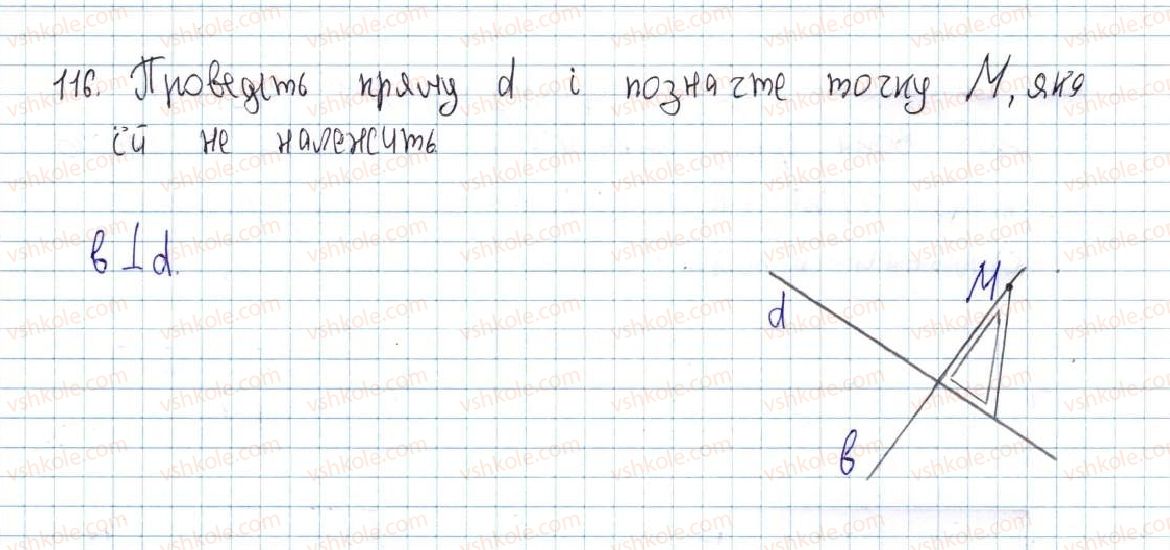 116. Проведіть пряму d і позначте точку M, яка
їй не належить
в ⊥ d.
M
d
в